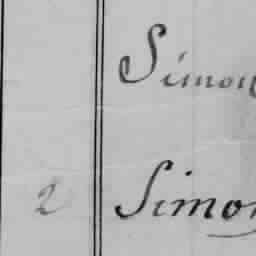 Simon
2 Simon